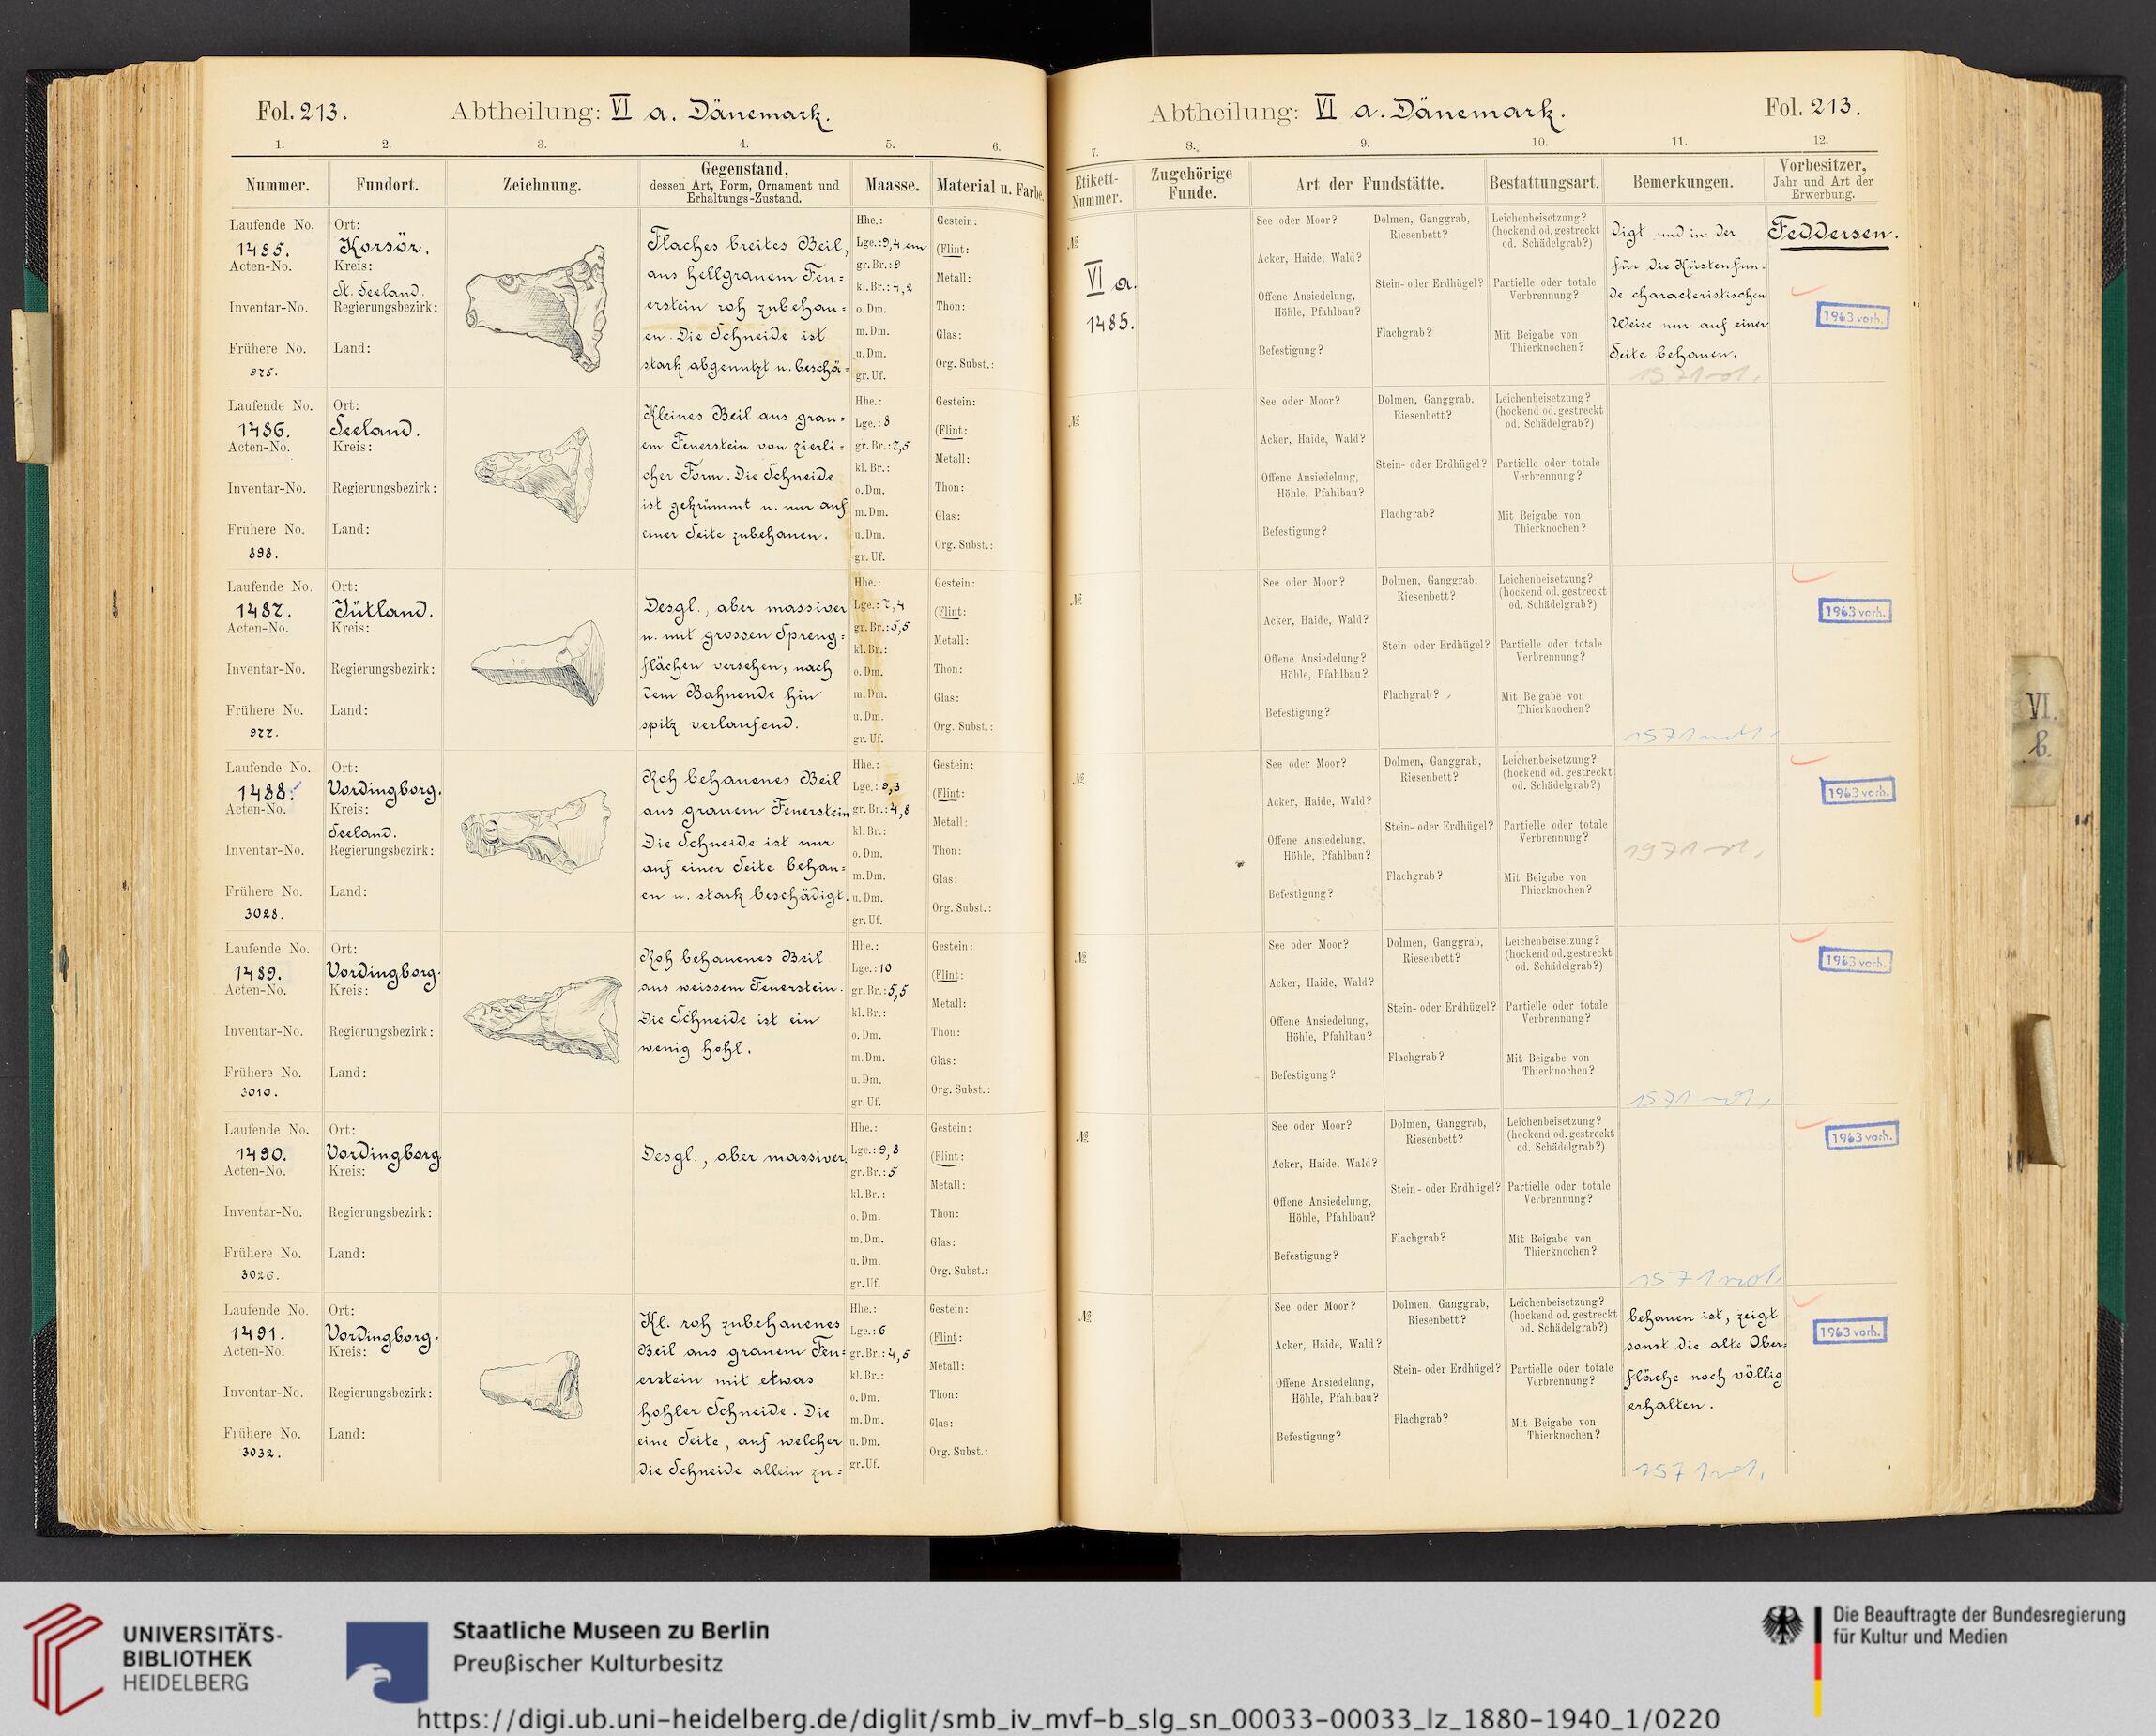 Fol. 213.
Abtheilung: VI a. Dänemark.
1. 2. 3. 4. 5. 6.
Nummer. Fundort. Zeichnung. Gegenstand, dessen Art, Form, Ornament und Erhaltungs-Zustand. Maasse. Material u. Farbe.
Laufende No.
1485.
Acten-No.
Inventar-No.
Frühere No.
975.
Ort:
Korsör.
Kreis:
St. Seeland.
Regierungsbezirk:
Land:
Flaches breites Beil,
aus hellgrauem Feu=
erstein roh zubehau=
en. Die Schneide ist
stark abgenutzt u. beschä=
Hhe.:
Lge.: 9,4 cm
gr. Br.: 9
kl. Br.: 4,2
o. Dm.
m. Dm.
u. Dm.
gr. Uf.
Gestein:
(Flint:
Metall:
Thon:
Glas:
Org. Subst.:
Laufende No.
1486.
Acten-No.
Inventar-No.
Frühere No.
898.
Ort:
Seeland.
Kreis:
Regierungsbezirk:
Land:
Kleines Beil aus grau=
em Feuerstein von zierli=
cher Form. Die Schneide
ist gekrümmt u. nur auf
einer Seite zubehauen.
Hhe.:
Lge.: 8
gr. Br.: 7,5
kl. Br.:
o. Dm.
m. Dm.
u. Dm.
gr. Uf.
Gestein:
(Flint:
Metall:
Thon:
Glas:
Org. Subst.:
Laufende No.
1487.
Acten-No.
Inventar-No.
Frühere No.
977.
Ort:
Jütland.
Kreis:
Regierungsbezirk:
Land:
Desgl., aber massiver
u. mit grossen Spreng=
flächen versehen, nach
dem Bahnende hin
spitz verlaufend.
Hhe.:
Lge.: 7,4
gr. Br.: 5,5
kl. Br.:
o. Dm.
m. Dm.
u. Dm.
gr. Uf.
Gestein:
(Flint:
Metall:
Thon:
Glas:
Org. Subst.:
Laufende No.
1488.
Acten-No.
Inventar-No.
Frühere No.
3028.
Ort:
Vordingborg.
Kreis:
Seeland.
Regierungsbezirk:
Land:
Roh behauenes Beil
aus grauem Feuerstein
Die Schneide ist nur
auf einer Seite behau=
en u. stark beschädigt.
Hhe.:
Lge.: 9,3
gr. Br.: 4,8
kl. Br.:
o. Dm.
m. Dm.
u. Dm.
gr. Uf.
Gestein:
(Flint:
Metall:
Thon:
Glas:
Org. Subst.:
Laufende No.
1489.
Acten-No.
Inventar-No.
Frühere No.
3010.
Ort:
Vordingborg.
Kreis:
Regierungsbezirk:
Land:
Roh behauenes Beil
aus weissem Feuerstein.
Die Schneide ist ein
wenig hohl.
Hhe.:
Lge.: 10
gr. Br.: 5,5
kl. Br.:
o. Dm.
m. Dm.
u. Dm.
gr. Uf.
Gestein:
(Flint:
Metall:
Thon:
Glas:
Org. Subst.:
Laufende No.
1490.
Acten-No.
Inventar-No.
Frühere No.
3026.
Ort:
Vordingborg
Kreis:
Regierungsbezirk:
Land:
Desgl., aber massiver.
Hhe.:
Lge.: 9,8
gr. Br.: 5
kl. Br.:
o. Dm.
m. Dm.
u. Dm.
gr. Uf.
Gestein:
(Flint:
Metall:
Thon:
Glas:
Org. Subst.:
Laufende No.
1491.
Acten-No.
Inventar-No.
Frühere No.
3032.
Ort:
Vordingborg.
Kreis:
Regierungsbezirk:
Land:
Kl. roh zubehauenes
Beil aus grauem Feu=
erstein mit etwas
hohler Schneide. Die
eine Seite, auf welcher
die Schneide allein zu=
Hhe.:
Lge.: 6
gr. Br.: 4,5
kl. Br.:
o. Dm.
m. Dm.
u. Dm.
gr. Uf.
Gestein:
(Flint:
Metall:
Thon:
Glas:
Org. Subst.:
Abtheilung: VI a. Dänemark.
Fol. 213.
7. 8. 9. 10. 11. 12.
Etikett-Nummer. Zugehörige Funde. Art der Fundstätte. Bestattungsart. Bemerkungen. Vorbesitzer, Jahr und Art der Erwerbung.
№
VI a.
1485.
See oder Moor?
Acker, Haide, Wald?
Offene Ansiedelung,
Höhle, Pfahlbau?
Befestigung?
Dolmen, Ganggrab,
Riesenbett?
Stein- oder Erdhügel?
Flachgrab?
Leichenbeisetzung?
(hockend od. gestreckt
od. Schädelgrab?)
Partielle oder totale
Verbrennung?
Mit Beigabe von
Thierknochen?
digt und in der
für die Küstenfun=
de characteristischen
Weise nur auf einer
Seite behauen.
Feddersen.
1963 vorh.
№
See oder Moor?
Acker, Haide, Wald?
Offene Ansiedelung,
Höhle, Pfahlbau?
Befestigung?
Dolmen, Ganggrab,
Riesenbett?
Stein- oder Erdhügel?
Flachgrab?
Leichenbeisetzung?
(hockend od. gestreckt
od. Schädelgrab?)
Partielle oder totale
Verbrennung?
Mit Beigabe von
Thierknochen?
№
See oder Moor?
Acker, Haide, Wald?
Offene Ansiedelung?
Höhle, Pfahlbau?
Befestigung?
Dolmen, Ganggrab,
Riesenbett?
Stein- oder Erdhügel?
Flachgrab?
Leichenbeisetzung?
(hockend od. gestreckt
od. Schädelgrab?)
Partielle oder totale
Verbrennung?
Mit Beigabe von
Thierknochen?
1963 vorh.
№
See oder Moor?
Acker, Haide, Wald?
Offene Ansiedelung,
Höhle, Pfahlbau?
Befestigung?
Dolmen, Ganggrab,
Riesenbett?
Stein- oder Erdhügel?
Flachgrab?
Leichenbeisetzung?
(hockend od. gestreckt
od. Schädelgrab?)
Partielle oder totale
Verbrennung?
Mit Beigabe von
Thierknochen?
1963 vorh.
№
See oder Moor?
Acker, Haide, Wald?
Offene Ansiedelung,
Höhle, Pfahlbau?
Befestigung?
Dolmen, Ganggrab,
Riesenbett?
Stein- oder Erdhügel?
Flachgrab?
Leichenbeisetzung?
(hockend od. gestreckt
od. Schädelgrab?)
Partielle oder totale
Verbrennung?
Mit Beigabe von
Thierknochen?
1963 vorh.
№
See oder Moor?
Acker, Haide, Wald?
Offene Ansiedelung,
Höhle, Pfahlbau?
Befestigung?
Dolmen, Ganggrab,
Riesenbett?
Stein- oder Erdhügel?
Flachgrab?
Leichenbeisetzung?
(hockend od. gestreckt
od. Schädelgrab?)
Partielle oder totale
Verbrennung?
Mit Beigabe von
Thierknochen?
1963 vorh.
№
See oder Moor?
Acker, Haide, Wald?
Offene Ansiedelung,
Höhle, Pfahlbau?
Befestigung?
Dolmen, Ganggrab,
Riesenbett?
Stein- oder Erdhügel?
Flachgrab?
Leichenbeisetzung?
(hockend od. gestreckt
od. Schädelgrab?)
Partielle oder totale
Verbrennung?
Mit Beigabe von
Thierknochen?
behauen ist, zeigt
sonst die alte Ober=
fläche noch völlig
erhalten.
1963 vorh.
VI.
b.
UNIVERSITÄTS-
BIBLIOTHEK
HEIDELBERG
Staatliche Museen zu Berlin
Preußischer Kulturbesitz
Die Beauftragte der Bundesregierung
für Kultur und Medien
https://digi.ub.uni-heidelberg.de/diglit/smb_iv_mvf-b_slg_sn_00033-00033_lz_1880-1940_1/0220